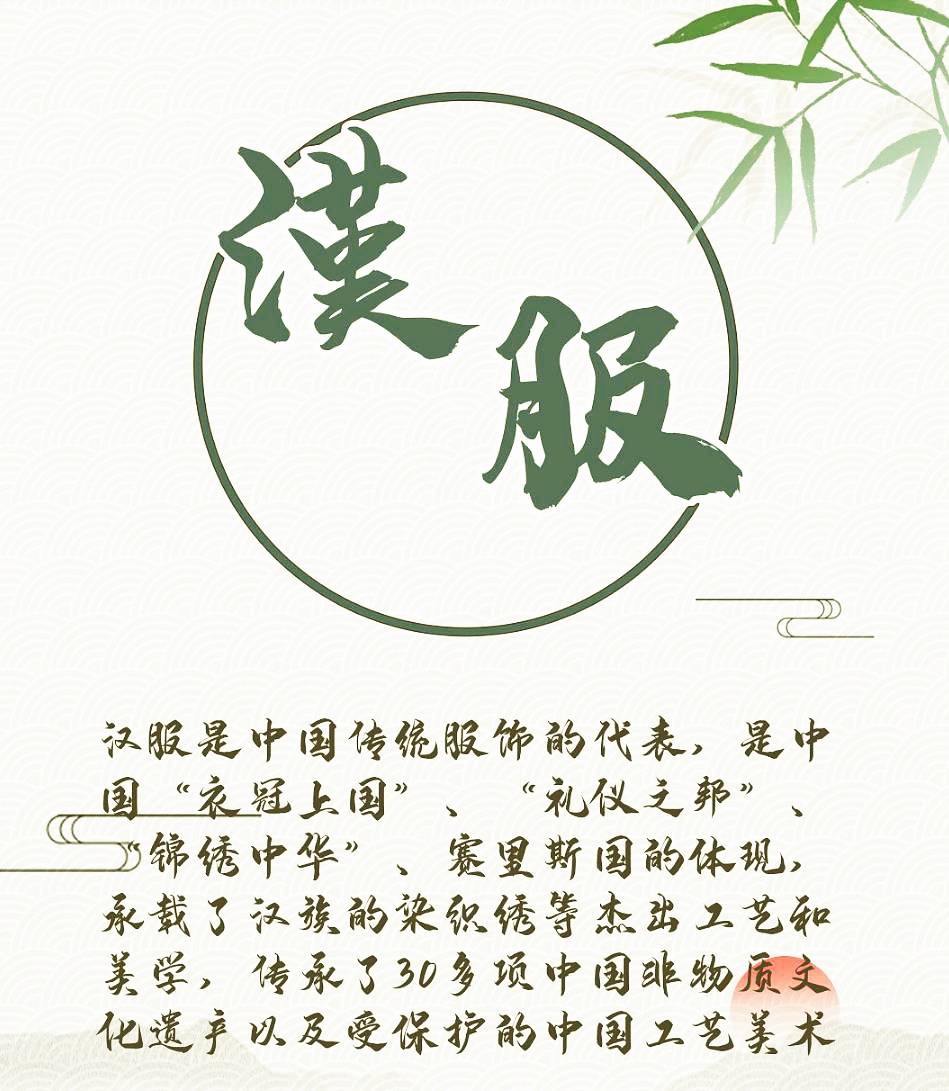 漢服
汉服是中国传统服饰的代表，是中
国“衣冠上国”、“礼仪之邦”、
“锦绣中华”、赛里斯国的体现，
承载了汉族的染织绣等杰出工艺和
美学，传承了30多项中国非物质文
化遗产以及受保护的中国工艺美术